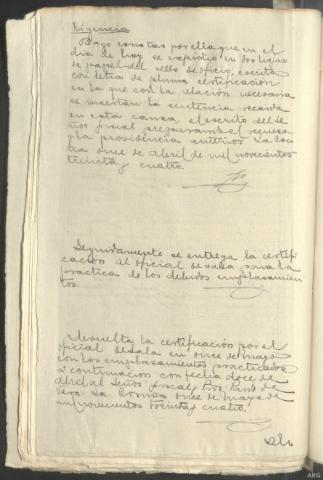 Diligencia
Hago constar por ella que en el
día de hoy se expidió en dos hojas
de papel del sello de oficio, escrita
con letra de pluma certificación
en la que con la relación necesaria
se insertan la sentencia recaida
en esta causa, el escrito del Se
ñor fiscal preparando el recurso
y la providencia anterior. La Co
ruña once de abril de mil novecientos
treinta y cuatro.
Seguidamente se entrega la certifi
cación al oficial de Sala para la
practica de los debidos emplazamien
tos.
Devuelta la certificación por el
oficial de Sala en once de mayo
con los emplazamientos practicados
a continuación con fecha doce de
abril al Señor fiscal, Pro.
Vera. La Coruña once de mayo de
mil novecientos treinta y cuatro.
ARG